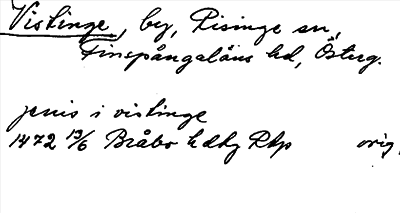 Vistinge, by, Risinge sn,
Finspångaläns hd, Österg.
jenis i vistinge
1472 13/6 Bråbo hdtg Rtp orig.